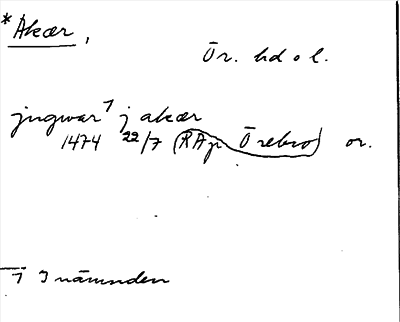 *Akær,
Ör. hd o l.
jngwar 1) j akær
1474 22/7 (RAp Örebro) or.
1) I nämnden